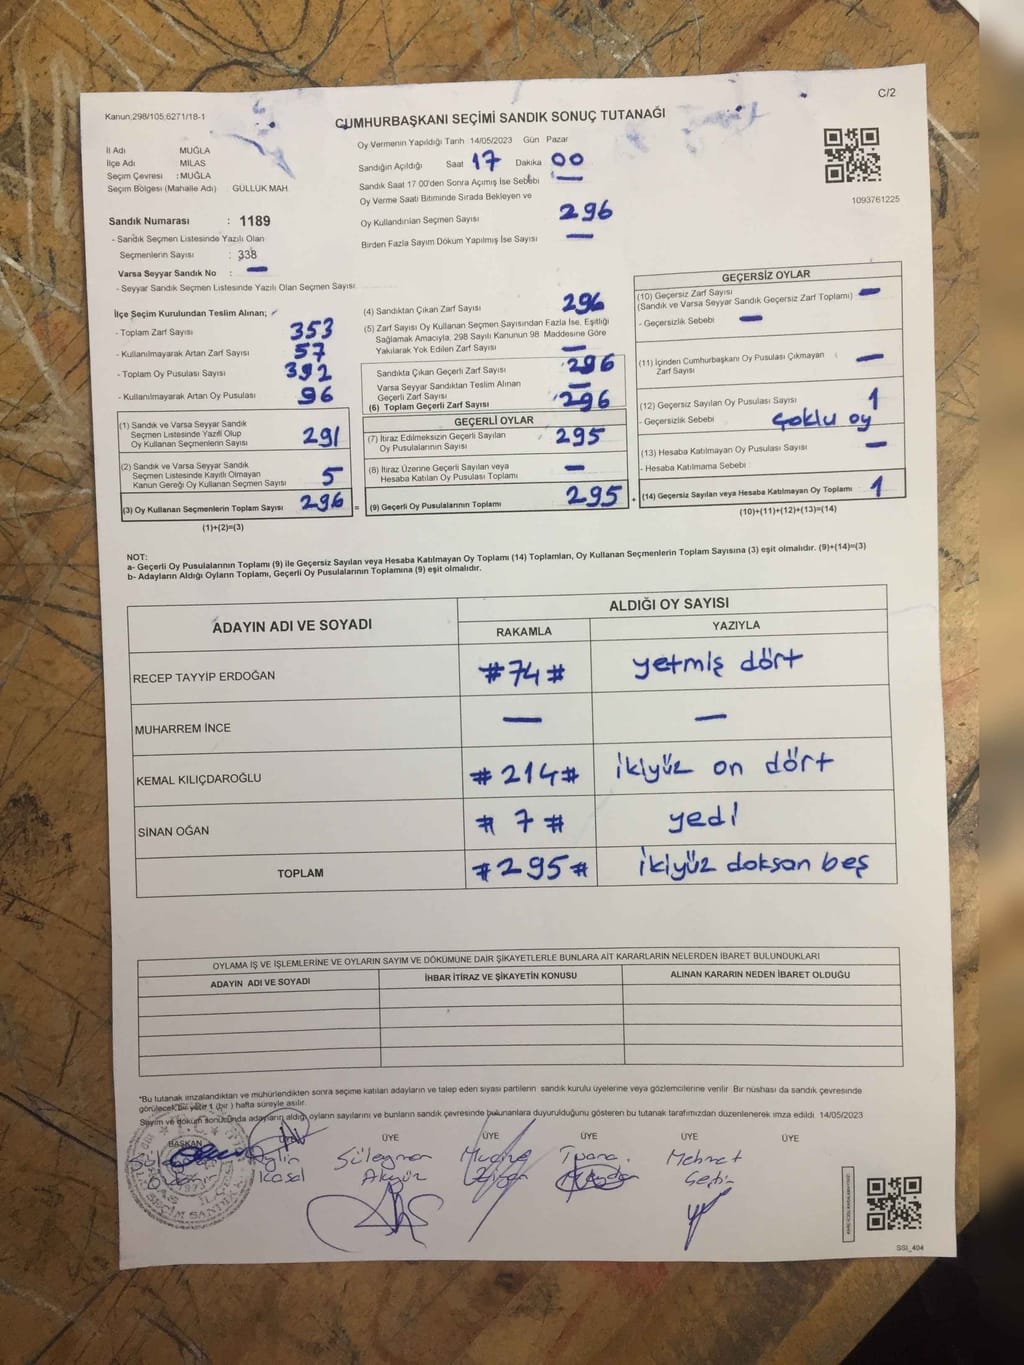 Kanun,298/105,6271/18-1
C/2
CUMHURBAŞKANI SEÇİMİ SANDIK SONUÇ TUTANAĞI
İl Adı MUĞLA
İlçe Adı MİLAS
Seçim Çevresi : MUĞLA
Seçim Bölgesi (Mahalle Adı) GÜLLÜK MAH.
Oy Vermenin Yapıldığı Tarih 14/05/2023 Gün Pazar
Sandığın Açıldığı Saat 17 Dakika 00
Sandık Saat 17:00'den Sonra Açımış İse Sebebi —
Oy Verme Saati Bitiminde Sırada Bekleyen ve
Oy Kullandırılan Seçmen Sayısı 296
Birden Fazla Sayım Döküm Yapılmış İse Sayısı —
1093761225
Sandık Numarası : 1189
- Sandık Seçmen Listesinde Yazılı Olan
Seçmenlerin Sayısı : 338
Varsa Seyyar Sandık No : —
- Seyyar Sandık Seçmen Listesinde Yazılı Olan Seçmen Sayısı:
İlçe Seçim Kurulundan Teslim Alınan;
- Toplam Zarf Sayısı 353
- Kullanılmayarak Artan Zarf Sayısı 57
- Toplam Oy Pusulası Sayısı 392
- Kullanılmayarak Artan Oy Pusulası 96
(1) Sandık ve Varsa Seyyar Sandık
Seçmen Listesinde Yazılı Olup
Oy Kullanan Seçmenlerin Sayısı 291
(2) Sandık ve Varsa Seyyar Sandık
Seçmen Listesinde Kayıtlı Olmayan
Kanun Gereği Oy Kullanan Seçmen Sayısı 5
(3) Oy Kullanan Seçmenlerin Toplam Sayısı 296 =
(1)+(2)=(3)
(4) Sandıktan Çıkan Zarf Sayısı 296
(5) Zarf Sayısı Oy Kullanan Seçmen Sayısından Fazla İse, Eşitliği
Sağlamak Amacıyla, 298 Sayılı Kanunun 98. Maddesine Göre
Yakılarak Yok Edilen Zarf Sayısı —
Sandıkta Çıkan Geçerli Zarf Sayısı 296
Varsa Seyyar Sandıktan Teslim Alınan
Geçerli Zarf Sayısı —
(6) Toplam Geçerli Zarf Sayısı 296
GEÇERLİ OYLAR
(7) İtiraz Edilmeksizin Geçerli Sayılan
Oy Pusulalarının Sayısı 295
(8) İtiraz Üzerine Geçerli Sayılan veya
Hesaba Katılan Oy Pusulası Toplamı —
(9) Geçerli Oy Pusulalarının Toplamı 295 +
GEÇERSİZ OYLAR
(10) Geçersiz Zarf Sayısı
(Sandık ve Varsa Seyyar Sandık Geçersiz Zarf Toplamı) —
- Geçersizlik Sebebi —
(11) İçinden Cumhurbaşkanı Oy Pusulası Çıkmayan
Zarf Sayısı —
(12) Geçersiz Sayılan Oy Pusulası Sayısı 1
- Geçersizlik Sebebi Çoklu oy
(13) Hesaba Katılmayan Oy Pusulası Sayısı —
- Hesaba Katılmama Sebebi
(14) Geçersiz Sayılan veya Hesaba Katılmayan Oy Toplamı 1
(10)+(11)+(12)+(13)=(14)
NOT:
a- Geçerli Oy Pusulalarının Toplamı (9) ile Geçersiz Sayılan veya Hesaba Katılmayan Oy Toplamı (14) Toplamları, Oy Kullanan Seçmenlerin Toplam Sayısına (3) eşit olmalıdır. (9)+(14)=(3)
b- Adayların Aldığı Oyların Toplamı, Geçerli Oy Pusulalarının Toplamına (9) eşit olmalıdır.
ADAYIN ADI VE SOYADI
ALDIĞI OY SAYISI
RAKAMLA YAZIYLA
RECEP TAYYİP ERDOĞAN #74# yetmiş dört
MUHARREM İNCE — —
KEMAL KILIÇDAROĞLU #214# ikiyüz on dört
SİNAN OĞAN #7# yedi
TOPLAM #295# ikiyüz doksan beş
OYLAMA İŞ VE İŞLEMLERİNE VE OYLARIN SAYIM VE DÖKÜMÜNE DAİR ŞİKAYETLERLE BUNLARA AİT KARARLARIN NELERDEN İBARET BULUNDUKLARI
ADAYIN ADI VE SOYADI İHBAR İTİRAZ VE ŞİKAYETİN KONUSU ALINAN KARARIN NEDEN İBARET OLDUĞU
*Bu tutanak imzalandıktan ve mühürlendikten sonra seçime katılan adayların ve talep eden siyasi partilerin sandık kurulu üyelerine veya gözlemcilerine verilir. Bir nüshası da sandık çevresinde
görülecek bir yere 1 (bir ) hafta süreyle asılır.
Sayım ve döküm sonucunda adayların aldığı oyların sayılarını ve bunların sandık çevresinde bulunanlara duyurulduğunu gösteren bu tutanak tarafımızdan düzenlenerek imza edildi. 14/05/2023
BAŞKAN ÜYE ÜYE ÜYE ÜYE ÜYE ÜYE
Süleyman Mehmet
SSI_404